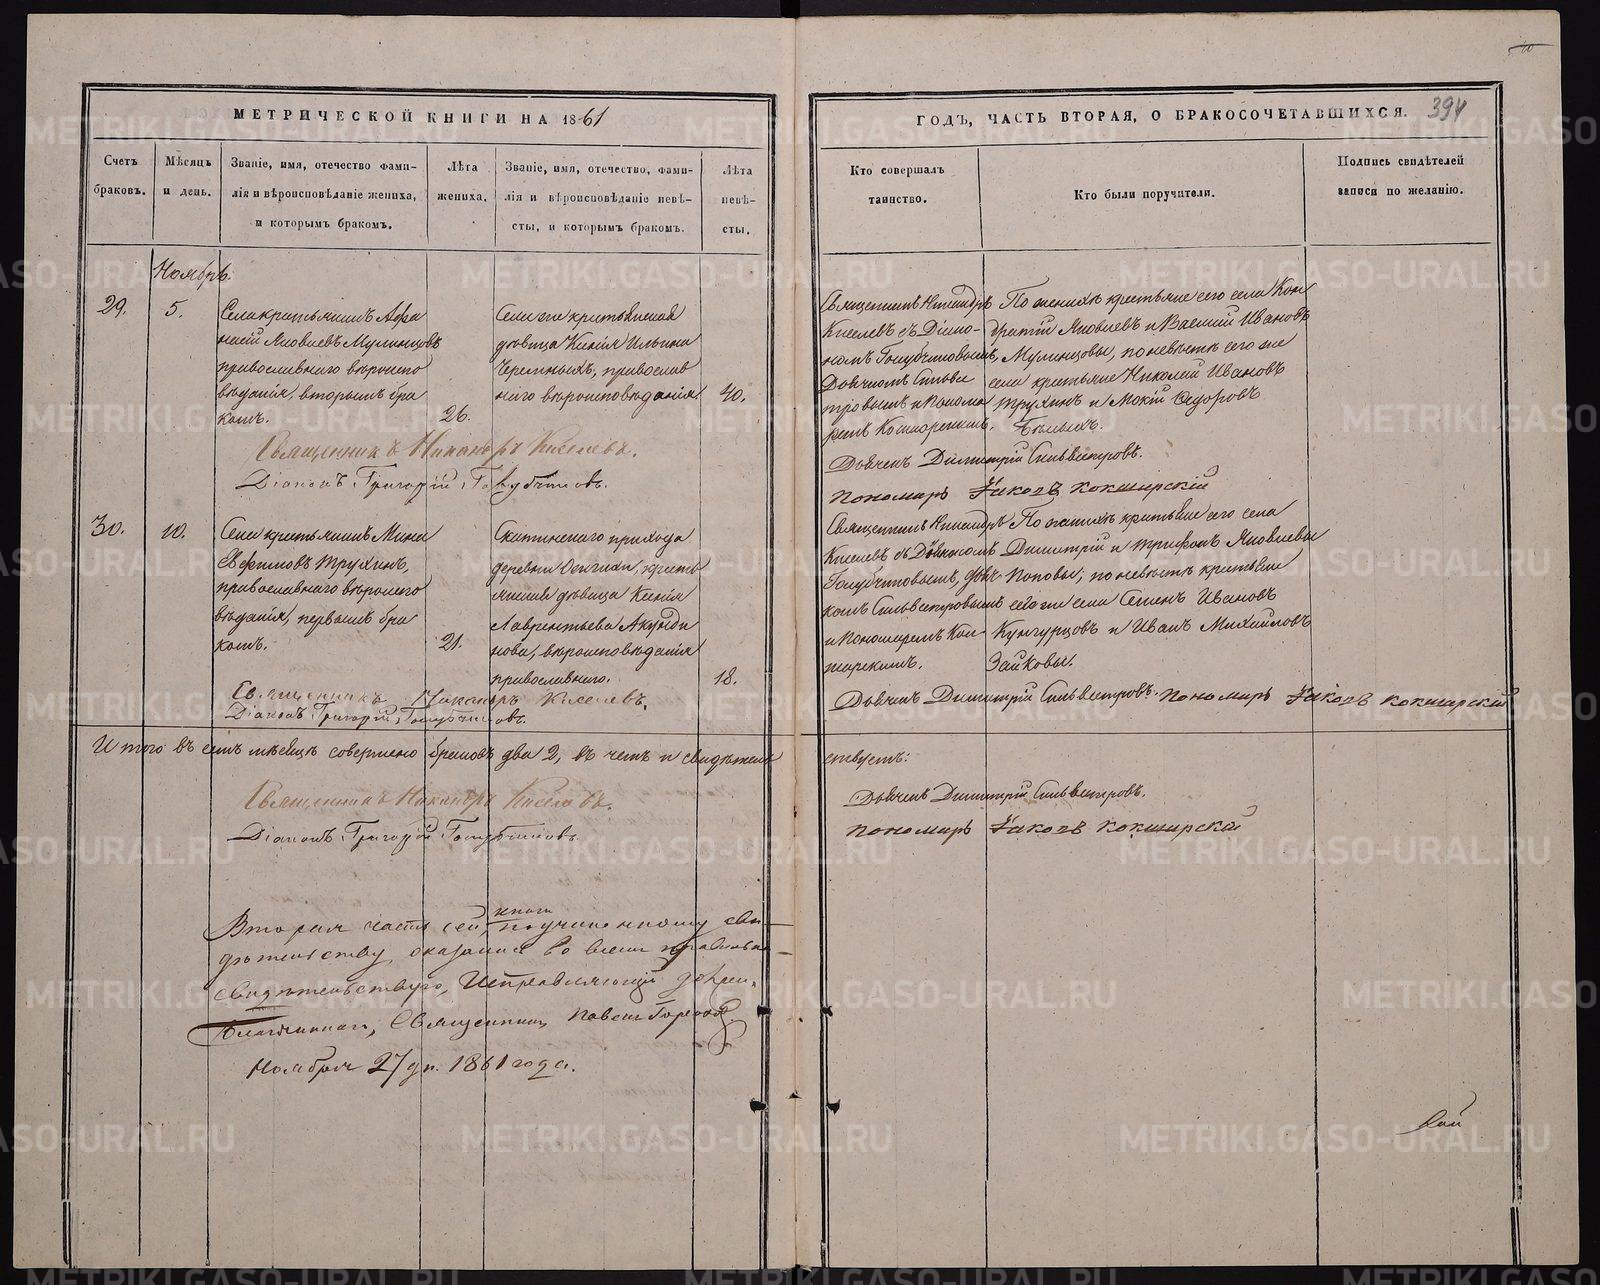 МЕТРИЧЕСКОЙ КНИГИ НА 1861
ГОДЪ, ЧАСТЬ ВТОРАЯ, О БРАКОСОЧЕТАВШИХСЯ.
394
Счетъ браковъ.
Мѣсяцъ и день.
Званіе, имя, отечество фами-
лія и вѣроисповѣданіе жениха,
и которымъ бракомъ.
Лѣта жениха.
Званіе, имя, отечество, фами-
лія и вѣроисповѣданіе невѣ-
сты, и которымъ бракомъ.
Лѣта невѣ-
сты.
Кто совершалъ
таинство.
Кто были поручители.
Подпись свидѣтелей
записи по желанію.
Ноябрь.
29.
5.
Села крестьянинъ Афа
насій Яковлевъ Мулинцовъ
православнаго вѣроиспо
вѣданія, вторымъ бра
комъ.
26.
Села сего крестьянская
дѣвица Ксенія Ильина
Черемныхъ, православ
наго вѣроисповѣданія
40.
Священникъ Никаноръ
Киселевъ съ Діако-
номъ Голубчиковымъ,
Дьячкомъ Сильве
стровымъ и Понома
ремъ Кокшарскимъ.
По женихѣ крестьяне сего села Кон
дратій Яковлевъ и Василій Ивановъ
Мулинцовы, по невѣстѣ сего же
села крестьяне Николай Ивановъ
Трухинъ и Мокій Федоровъ
Бѣлыхъ.
Священникъ Никаноръ Киселевъ.
Діаконъ Григорій Голубчиковъ.
Дьячекъ Димитрій Сильвестровъ.
Пономарь Іаковъ Кокшарскій
30.
10.
Села крестьянинъ Мина
Ефимовъ Трухинъ,
православнаго вѣроиспо
вѣданія, первымъ бра
комъ.
21.
Скатинскаго прихода
деревни крестьянская дѣвица Ксенія
Лаврентьева Акинди
нова, вѣроисповѣданія
православнаго.
18.
Священникъ Никаноръ
Киселевъ, съ Діакономъ
Голубчиковымъ, Дьяч
комъ Сильвестровымъ
и Пономаремъ Кок
шарскимъ.
По женихѣ крестьяне сего села
Димитрій и Трифонъ Яковлевы
Поповы; по невѣстѣ крестьяне
сего же села Семенъ Ивановъ
Кунгурцовъ и Иванъ Михайловъ
Зайковы.
Священникъ Никаноръ Киселевъ.
Діаконъ Григорій Голубчиковъ.
Дьячекъ Димитрій Сильвестровъ. Пономарь Іаковъ Кокшарскій
Итого въ семъ мѣсяцѣ совершено браковъ два 2, въ чемъ и свидѣтель
ствуетъ:
Священникъ Никаноръ Киселевъ.
Діаконъ Григорій Голубчиковъ.
Дьячекъ Димитрій Сильвестровъ.
Пономарь Іаковъ Кокшарскій
Вторая часть сей книги по учиненному сви
дѣтельству, оказалась во всемъ
свидѣтельствую, Исправляющій
Благочиннаго, Священникъ Павелъ
Ноября 27 дн. 1861 года.
METRIKI.GASO-URAL.RU